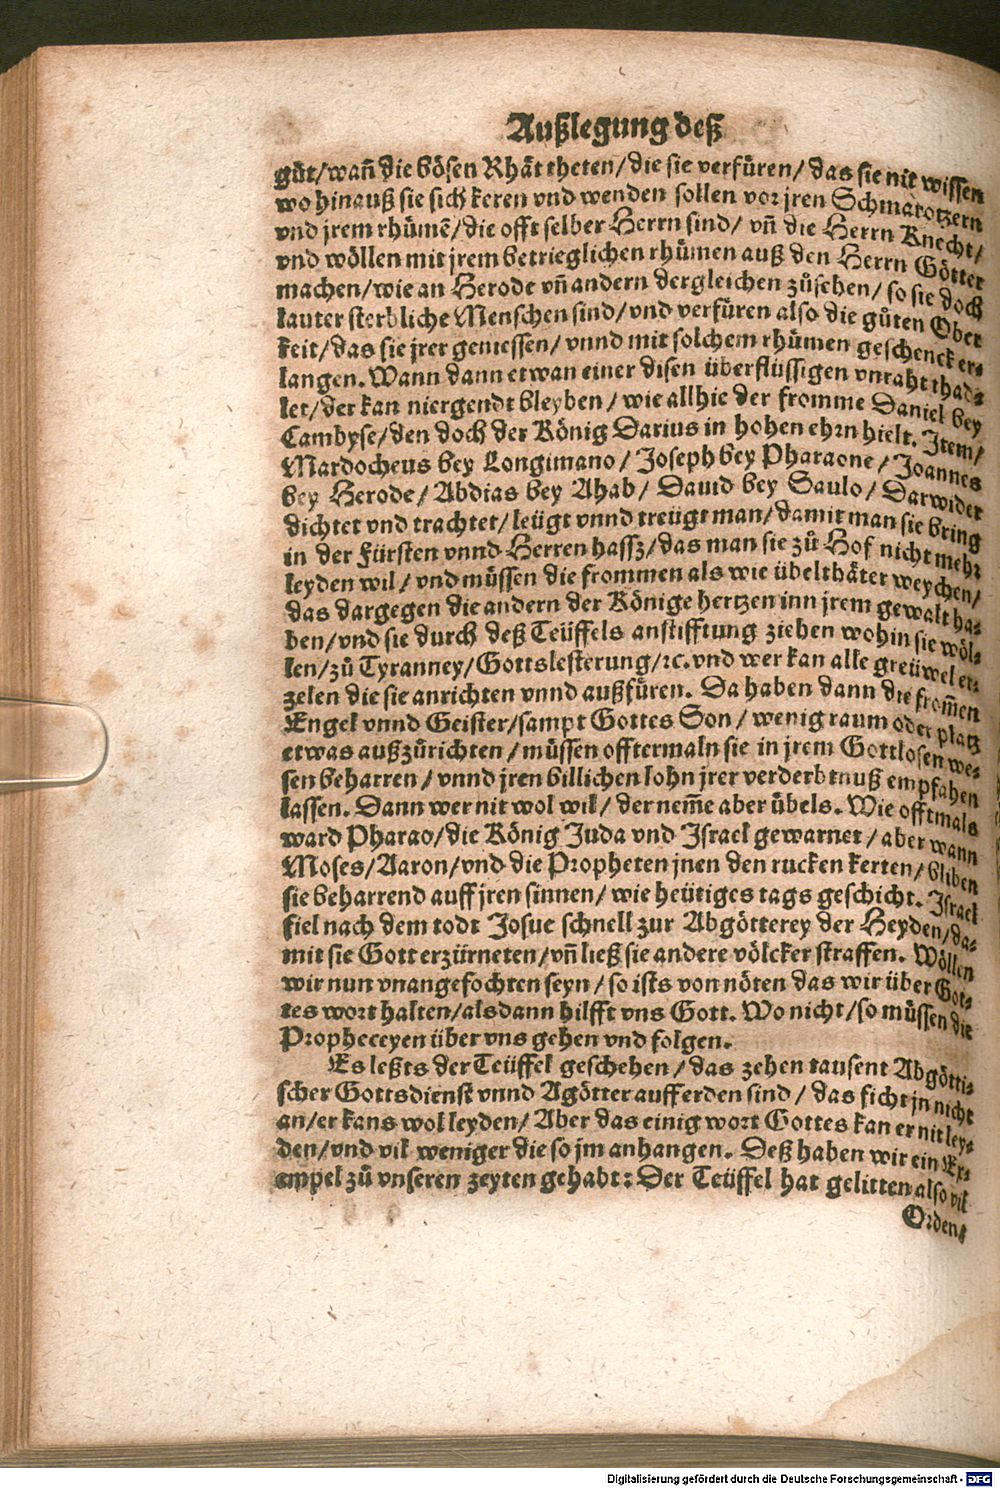 Außlegung deß
gůt/wañ die bösen Rhät theten/die sie verfüren/das sie nit wissen
wo hinauß sie sich keren vnd wenden sollen vor jren Schmarotzern
vnd jrem rhümẽ/die offt selber Herrn sind/ vñ die Herrn Knecht/
vnd wöllen mit jrem betrieglichen rhümen auß den Herrn Götter
machen/wie an Herode vñ andern dergleichen zůsehen/ so sie doch
lauter sterbliche Menschen sind/vnd verfüren also die gůten Ober
keit/das sie jrer geniessen/ vnnd mit solchem rhümen geschenck er-
langen. Wann dann etwan einer disen überflüssigen vnraht thad-
let/der kan niergendt bleyben/ wie allhie der fromme Daniel bey
Cambyse/den doch der König Darius in hohen ehrn hielt. Item/
Mardocheus bey Longimano/ Joseph bey Pharaone/ Joannes
bey Herode/ Abdias bey Ahab/ Dauid bey Saulo/ Darwider
dichtet vnd trachtet/leügt vnnd treügt man/damit man sie bring
in der Fürsten vnnd Herren hassz/das man sie zů Hof nicht mehr
leyden wil/ vnd müssen die frommen als wie übelthäter weychen/
das dargegen die andern der Könige hertzen inn jrem gewalt ha-
ben/vnd sie durch deß Teüffels anstifftung ziehen wohin sie wöl-
len/zů Tyranney/Gottslesterung/ꝛc. vnd wer kan alle greüwel er-
zelen die sie anrichten vnnd außfüren. Da haben dann die from̃en
Engel vnnd Geister/sampt Gottes Son/ wenig raum oder platz
etwas außzůrichten/müssen offtermaln sie in jrem Gottlosen we-
sen beharren/ vnnd jren billichen lohn jrer verderbtnuß empfahen
lassen. Dann wer nit wol wil/ der nem̃e aber übels. Wie offtmals
ward Pharao/die König Juda vnd Israel gewarnet/ aber wann
Moses/Aaron/vnd die Propheten jnen den rucken kerten/ bliben
sie beharrend auff jren sinnen/ wie heütiges tags geschicht. Israel
fiel nach dem todt Josue schnell zur Abgötterey der Heyden/da-
mit sie Gott erzürneten/vñ ließ sie andere völcker straffen. Wöllen
wir nun vnangefochten seyn/ so ists von nöten das wir über Got-
tes wort halten/alsdann hilfft vns Gott. Wo nicht/so müssen die
Propheceyen über vns gehen vnd folgen.
Es leßts der Teüffel geschehen/das zehen tausent Abgötti-
scher Gottsdienst vnnd Agötter aufferden sind/ das ficht jn nicht
an/er kans wol leyden/ Aber das einig wort Gottes kan er nit ley-
den/vnd vil weniger die so jm anhangen. Deß haben wir ein Ex-
empel zů vnseren zeyten gehabt: Der Teüffel hat gelitten also vil
Orden/
Digitalisierung gefördert durch die Deutsche Forschungsgemeinschaft - DFG